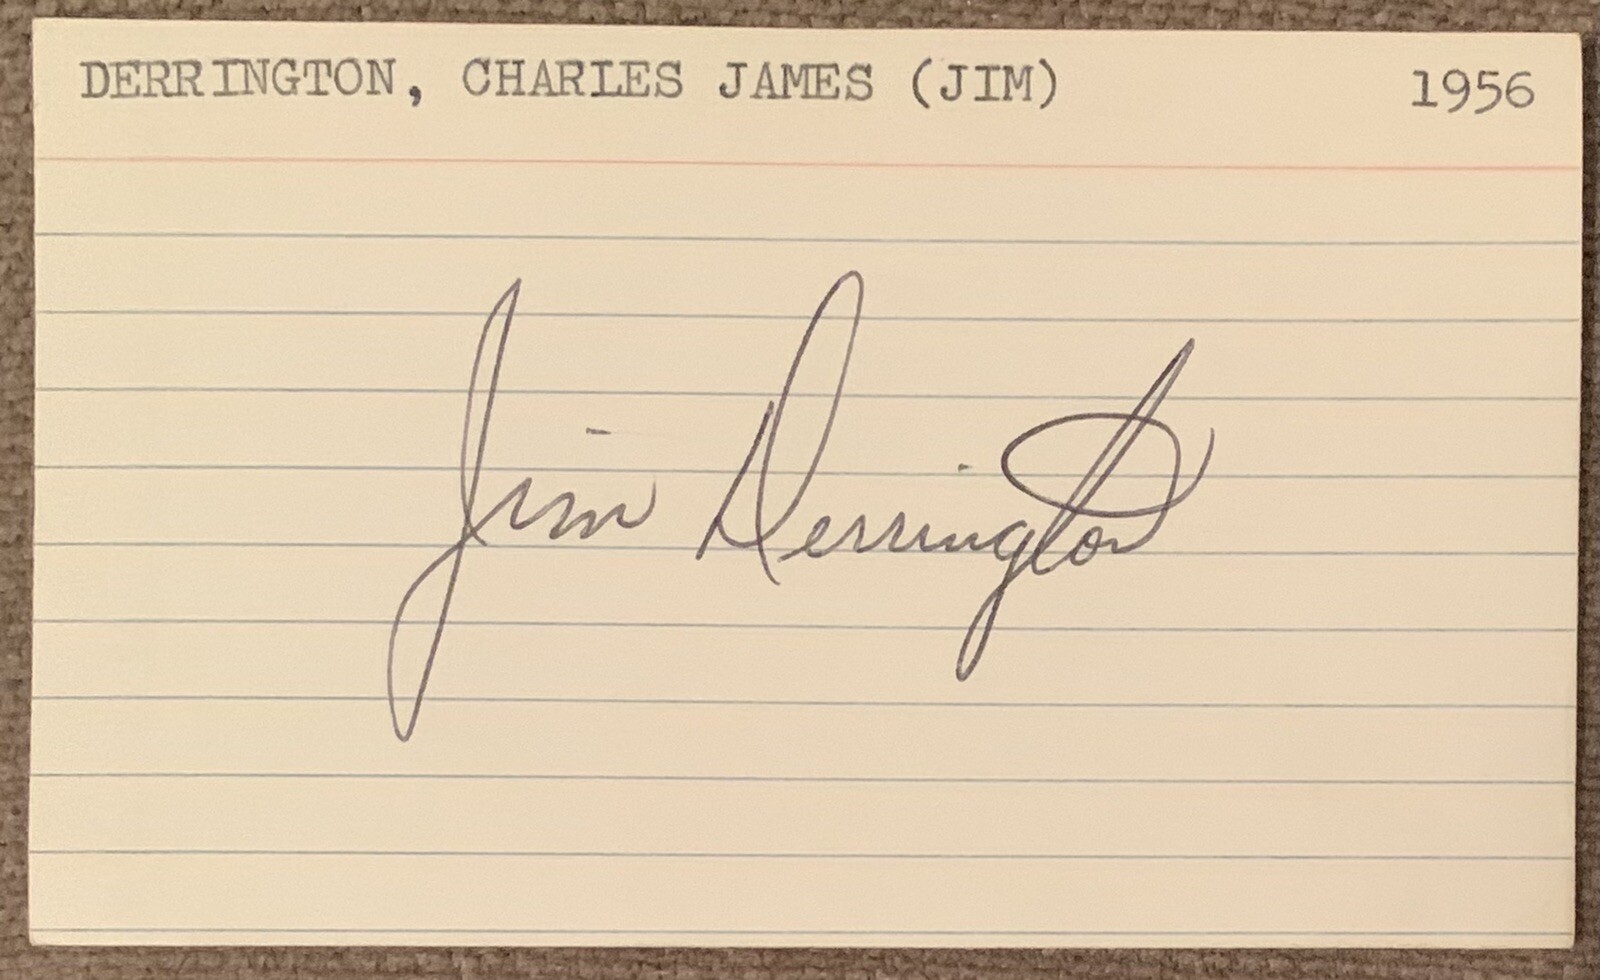 DERRINGTON, CHARLES JAMES (JIM) 1956
Jim Derrington